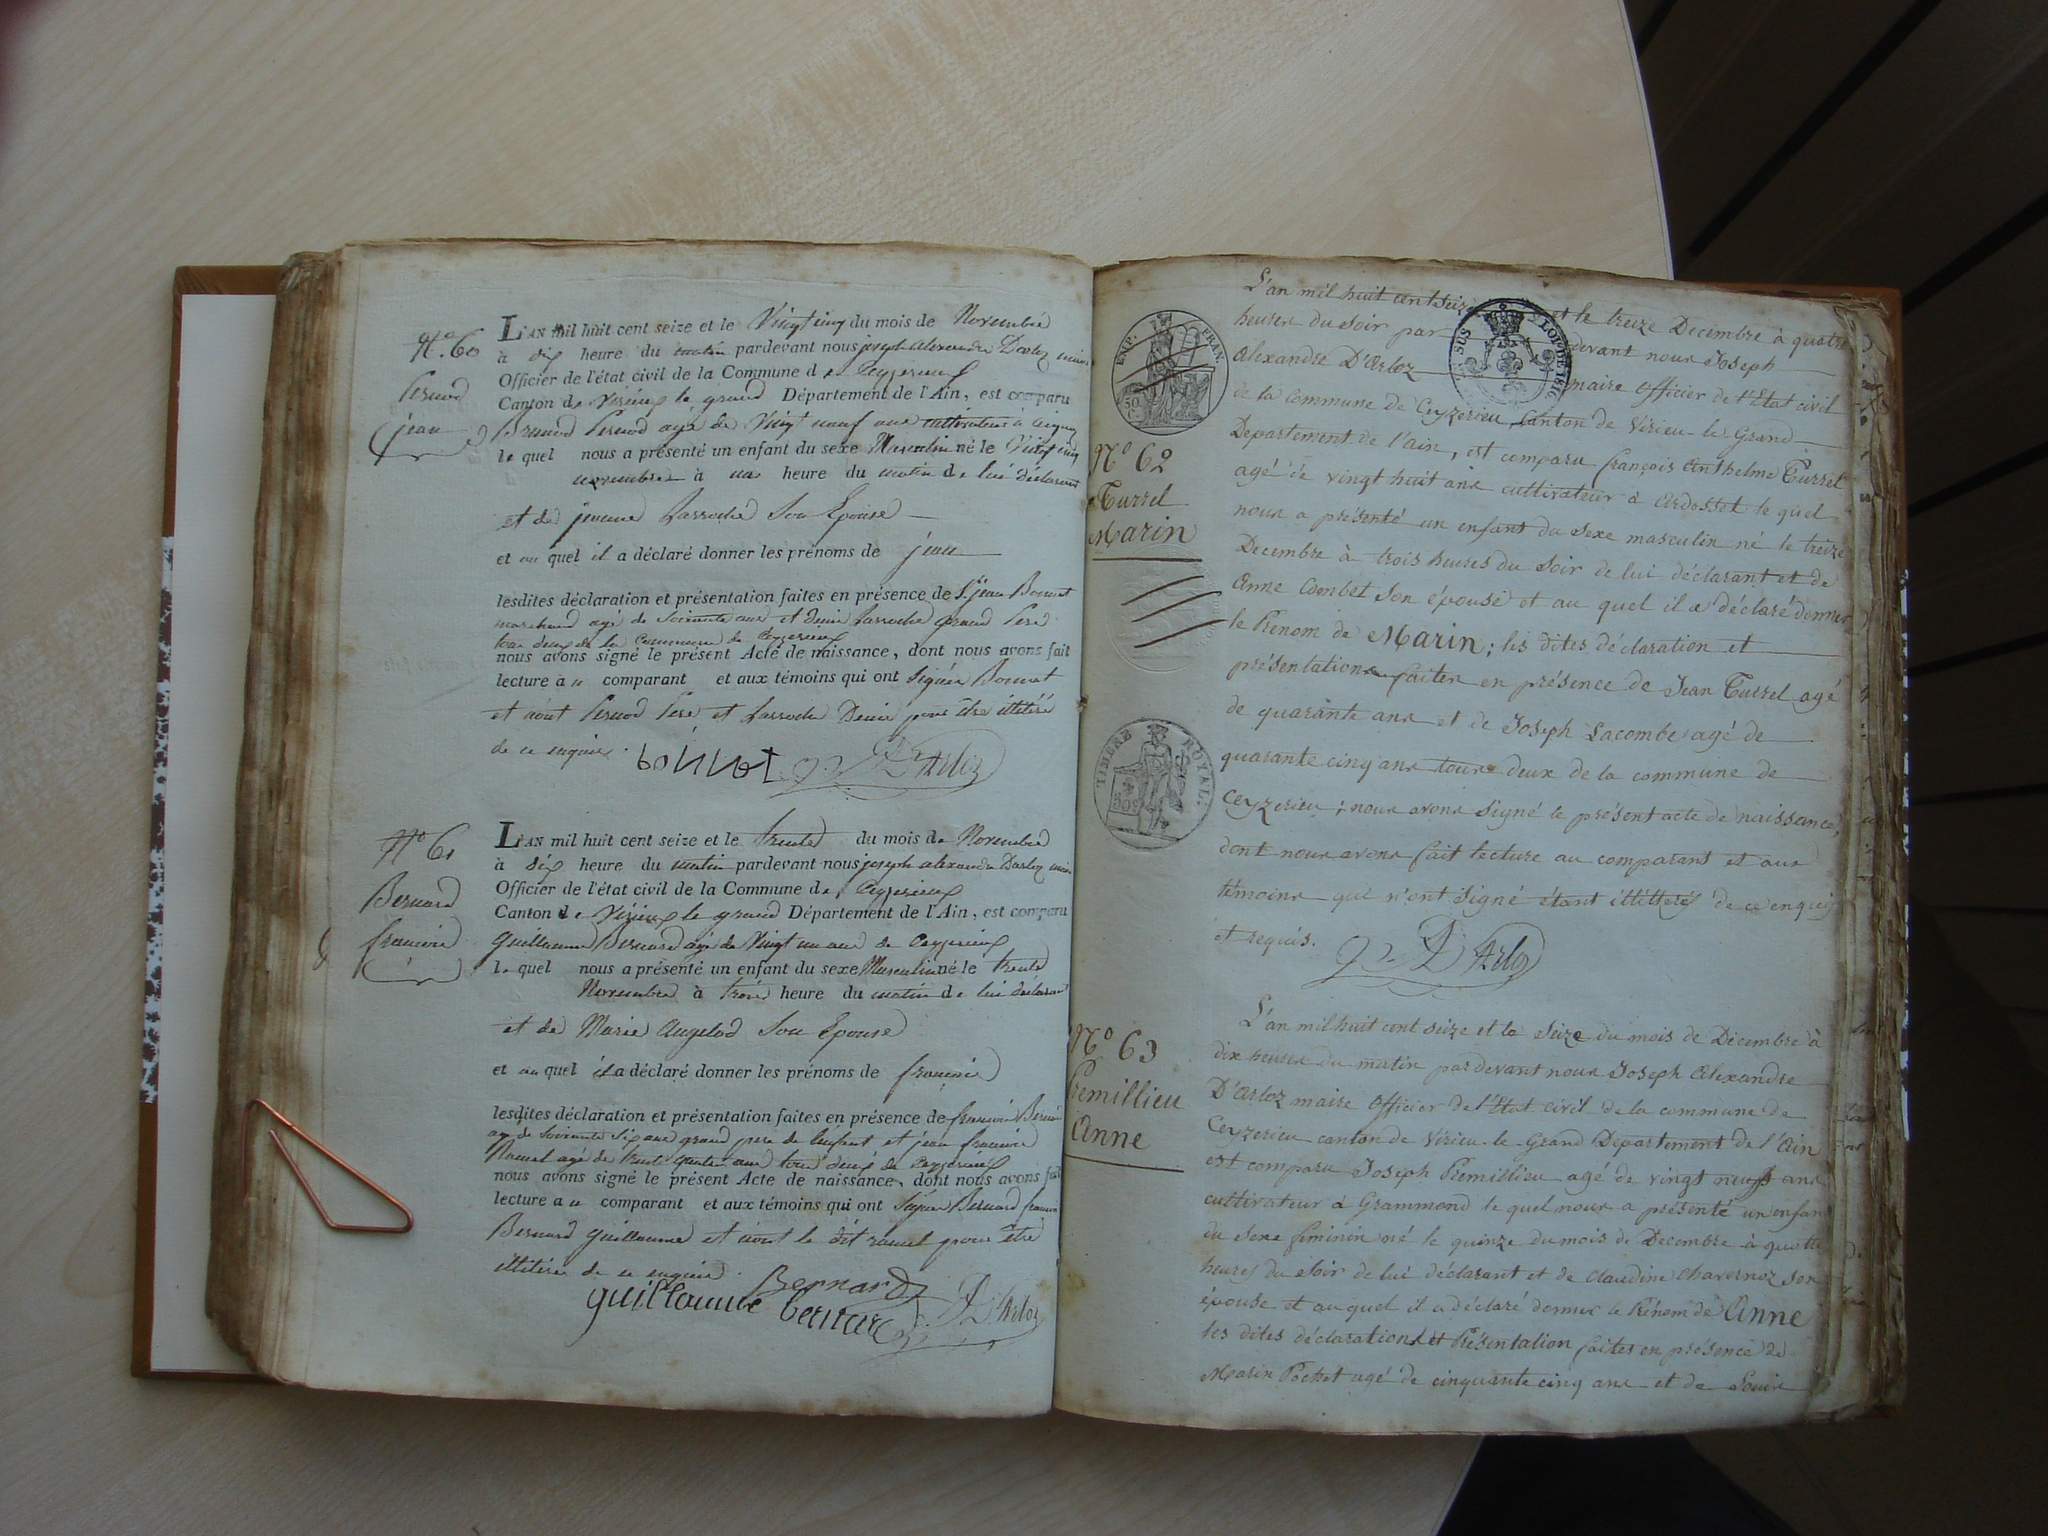 N.º 60
Pernod
jean
L'AN mil huit cent seize et le Vingt cinq du mois de Novembre
à dix heure du matin pardevant nous joseph alexandre Darloz maire
Officier de l'état civil de la Commune de Ceyzerieux
Canton de Virieux le grand Département de l'Ain, est comparu
Pernod agé de Vingt neuf ans cultivateur à
lequel nous a présenté un enfant du sexe Masculin né le Vingt cinq
novembre à une heure du matin de lui déclarant
et de jeanne Larroche Son Epouse
et au quel il a déclaré donner les prénoms de jean
lesdites déclaration et présentation faites en présence de Sr. jean Bonnet
marchand agé de Soixante ans et denis Larroche grand Pere
tous deux de la Commune de Ceyzerieux
nous avons signé le présent Acte de naissance, dont nous avons fait
lecture au comparant et aux témoins qui ont Signés Bonnet
et non Pernod Pere et Larroche Denis pour être illitéré
de ce enquis.
bonnet D'Arloz
N.º 61
Bernard
francois
L'AN mil huit cent seize et le trente du mois de Novembre
à dix heure du matin pardevant nous joseph alexandre Darloz maire
Officier de l'état civil de la Commune de Ceyzerieux
Canton de Virieux le grand Département de l'Ain, est comparu
Guillaume Bernard agé de Vingt un ans de Ceyzerieux
lequel nous a présenté un enfant du sexe Masculin né le trente
Novembre à trois heure du matin de lui déclarant
et de Marie Angelod Son Epouse
et au quel il a déclaré donner les prénoms de francois
lesdites déclaration et présentation faites en présence de francois Bernard
agé de soixante six ans grand pere de l'enfant et jean francois
Ramel agé de trente quatre ans tous deux de Ceyzerieux
nous avons signé le présent Acte de naissance, dont nous avons fait
lecture au comparant et aux témoins qui ont Signés Bernard francois
Bernard guillaume et non le dit ramel pour être
illitéré de ce enquis.
Bernard D'Arloz
guillaume bernard
EMP. FRAN.
50 C.
SUS LOI DE 1816
N.º 62
Turrel
Marin
TIMBRE ROYAL.
50c
L'an mil huit cent seize et le treize Decembre à quatre
heures du soir par devant nous Joseph
Alexandre D'Arloz maire Officier de l'Etat civil
de la commune de Ceyzerieu Canton de Virieu-le-Grand
Departement de l'ain, est comparu françois Anthelme Turrel
agé de vingt huit ans cultivateur à Ardosset le quel
nous a présenté un enfant du Sexe masculin né le treize
Decembre à trois heures du Soir de lui déclarant et de
Anne Combet Son épouse et au quel il a déclaré donner
le Prénom de Marin; les dites déclaration et
présentation faites en présence de Jean Turrel agé
de quarante ans et de Joseph Lacombe agé de
quarante cinq ans tous deux de la commune de
Ceyzerieu; nous avons signé le présent acte de naissance,
dont nous avons fait lecture au comparant et aux
témoins qui n'ont signé étant illitterés de ce enquis
et requis.
D'Arloz
N.º 63
Premillieu
Anne
L'an mil huit cent seize et le Seize du mois de Décembre à
dix heures du matin pardevant nous Joseph Alexandre
D'Arloz maire Officier de l'Etat civil de la commune de
Ceyzerieu canton de Virieu-le-Grand Departement de l'Ain
est comparu Joseph Premillieu agé de vingt neuf ans
cultivateur à Grammond le quel nous a présenté un enfant
du Sexe féminin né le quinze du mois de Decembre à quatre
heures du Soir de lui déclarant et de Claudine Chavernoz son
épouse et au quel il a déclaré donner le Prénom de Anne
les dites déclaration et Présentation faites en présence de
Marin Pochet agé de cinquante cinq ans et de Louis